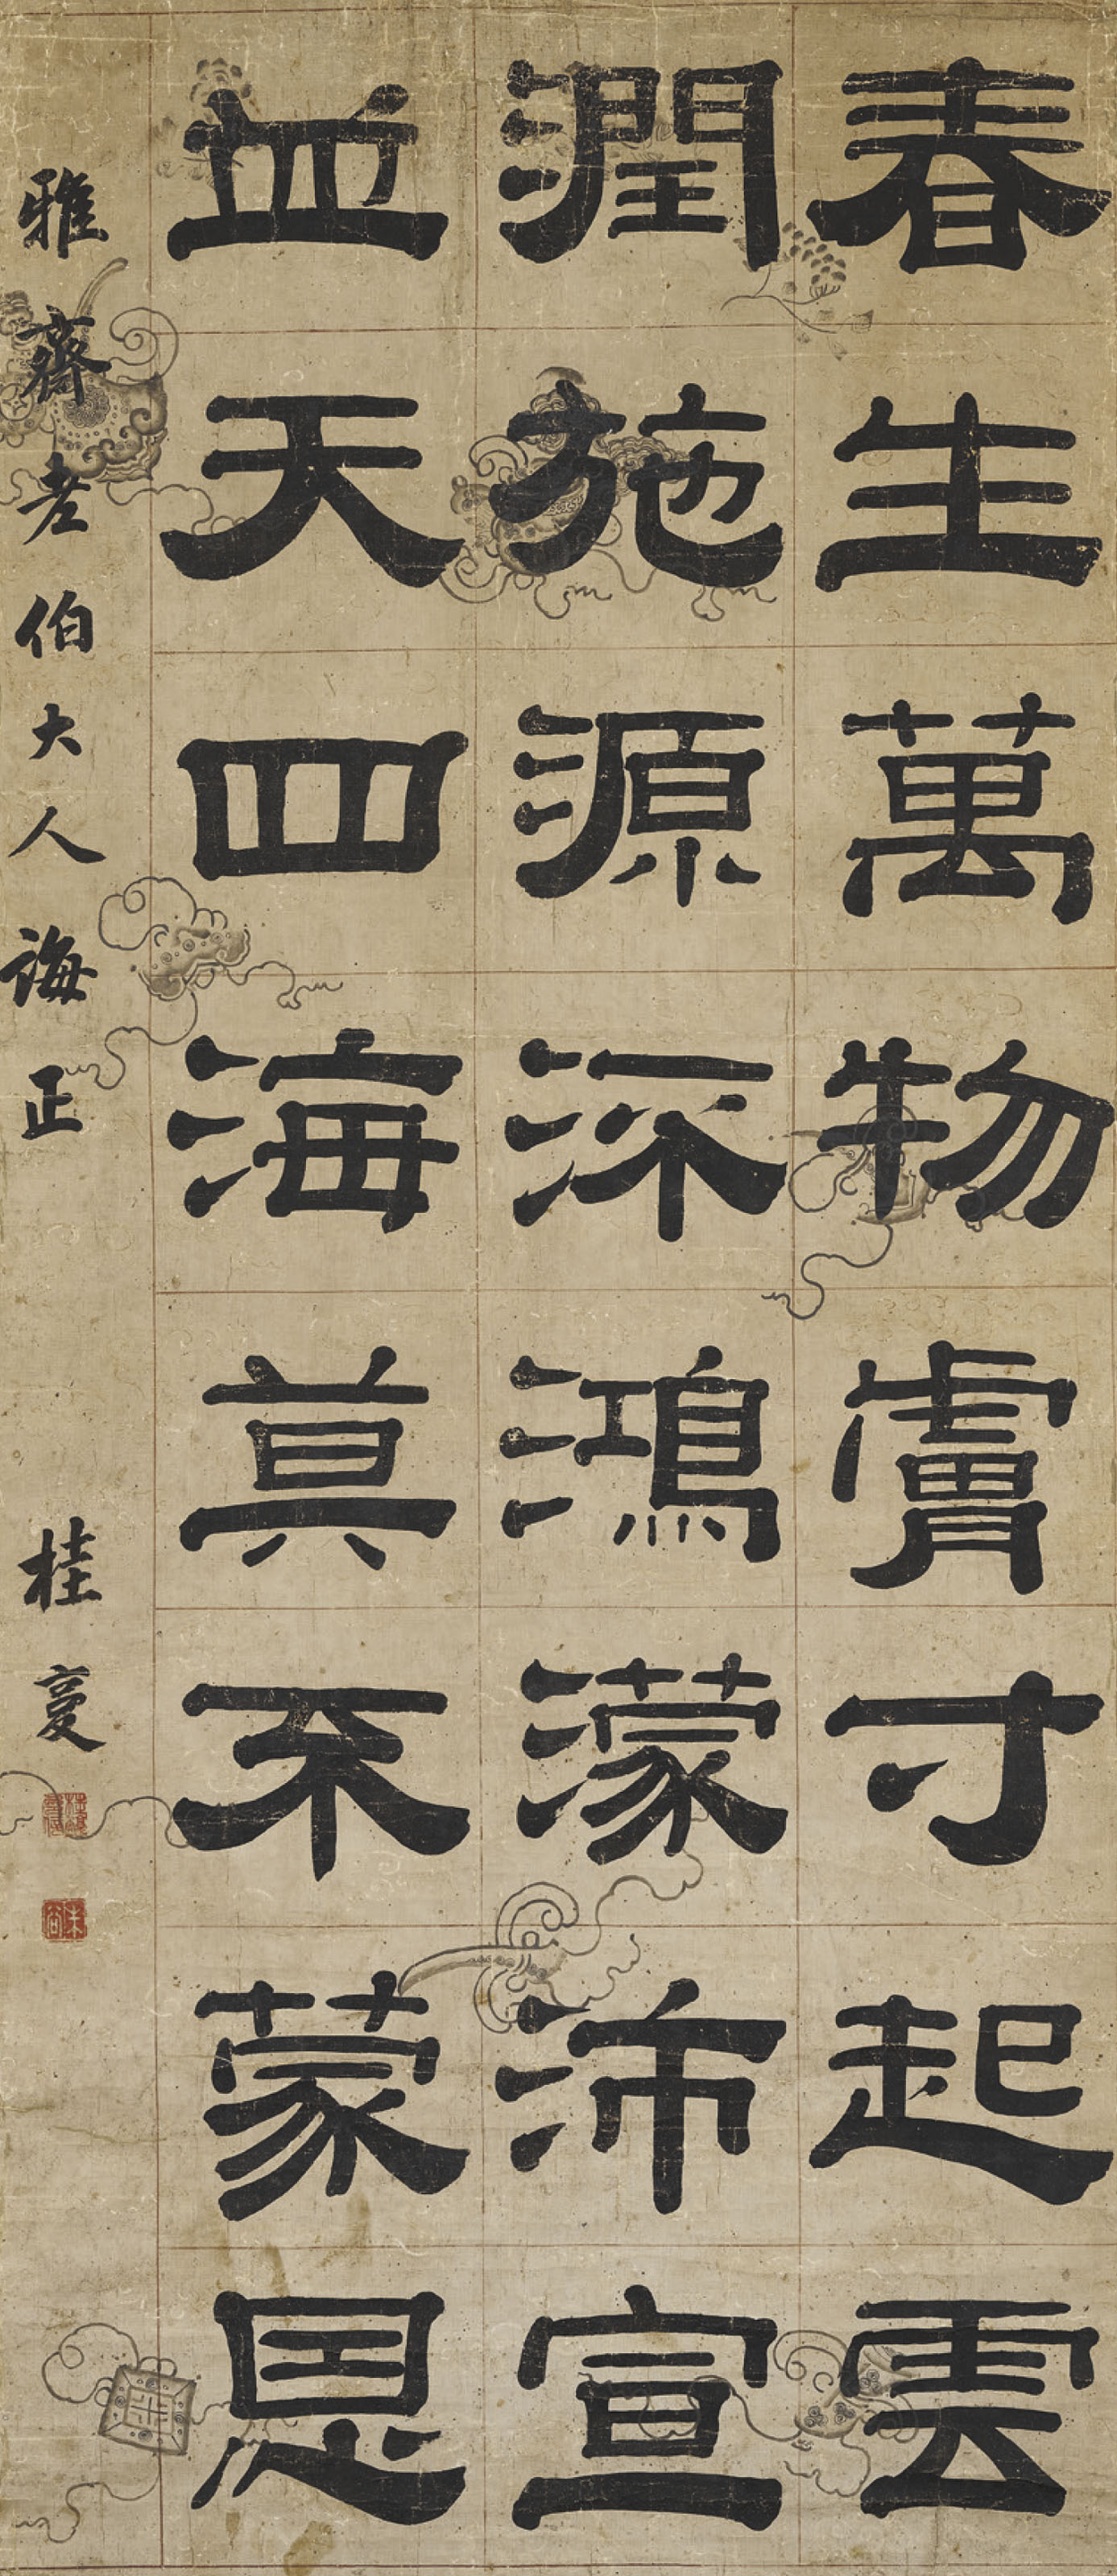 春生萬物膚寸起雲
潤施源深鴻濛沛宣
並天四海莫不蒙恩
雅齋老伯大人誨正
桂馥
未谷